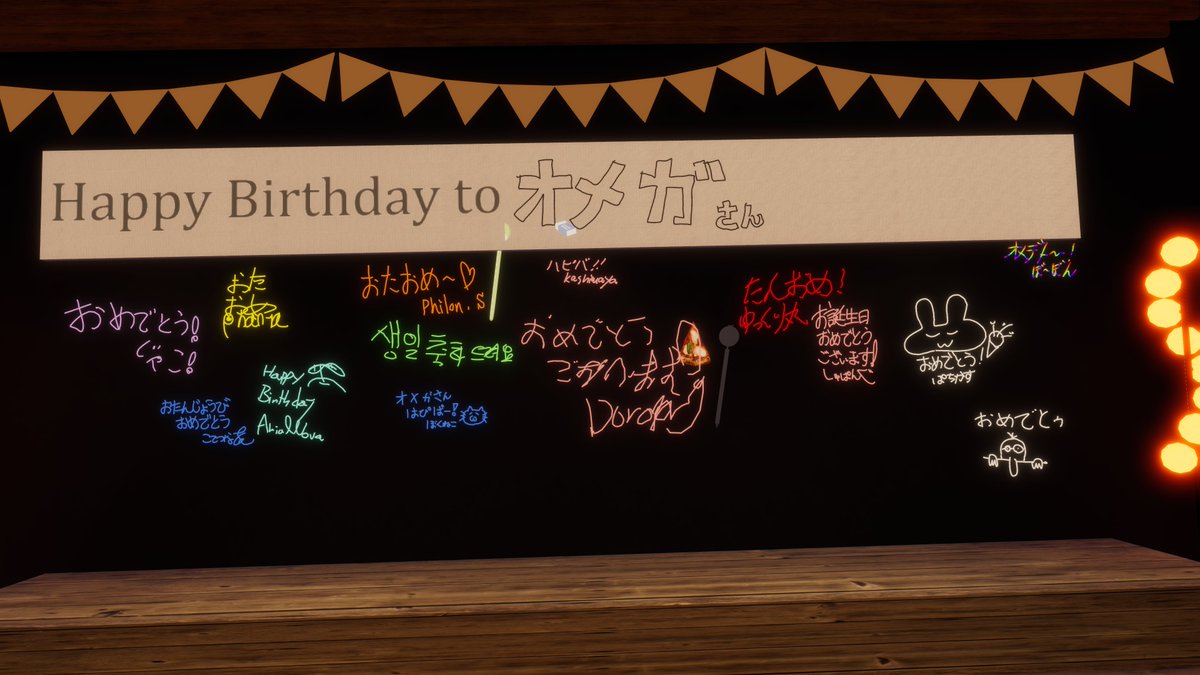 Happy Birthday to オメガさん
おめでとう!
じゃこ!
おた
おめ
おたおめ～♡
Philon.S
생일 축하 드려요
ハピバ!!
Kashiwaya
おめでとう
ございます
たんおめ!
ゆっくり丸
お誕生日
おめでとう
ございます!
おめでとう!
オメデト～!
Happy
Birthday
おたんじょうび
おめでとう
オメガさん
はぴば!
ぼくねこ
おめでとう